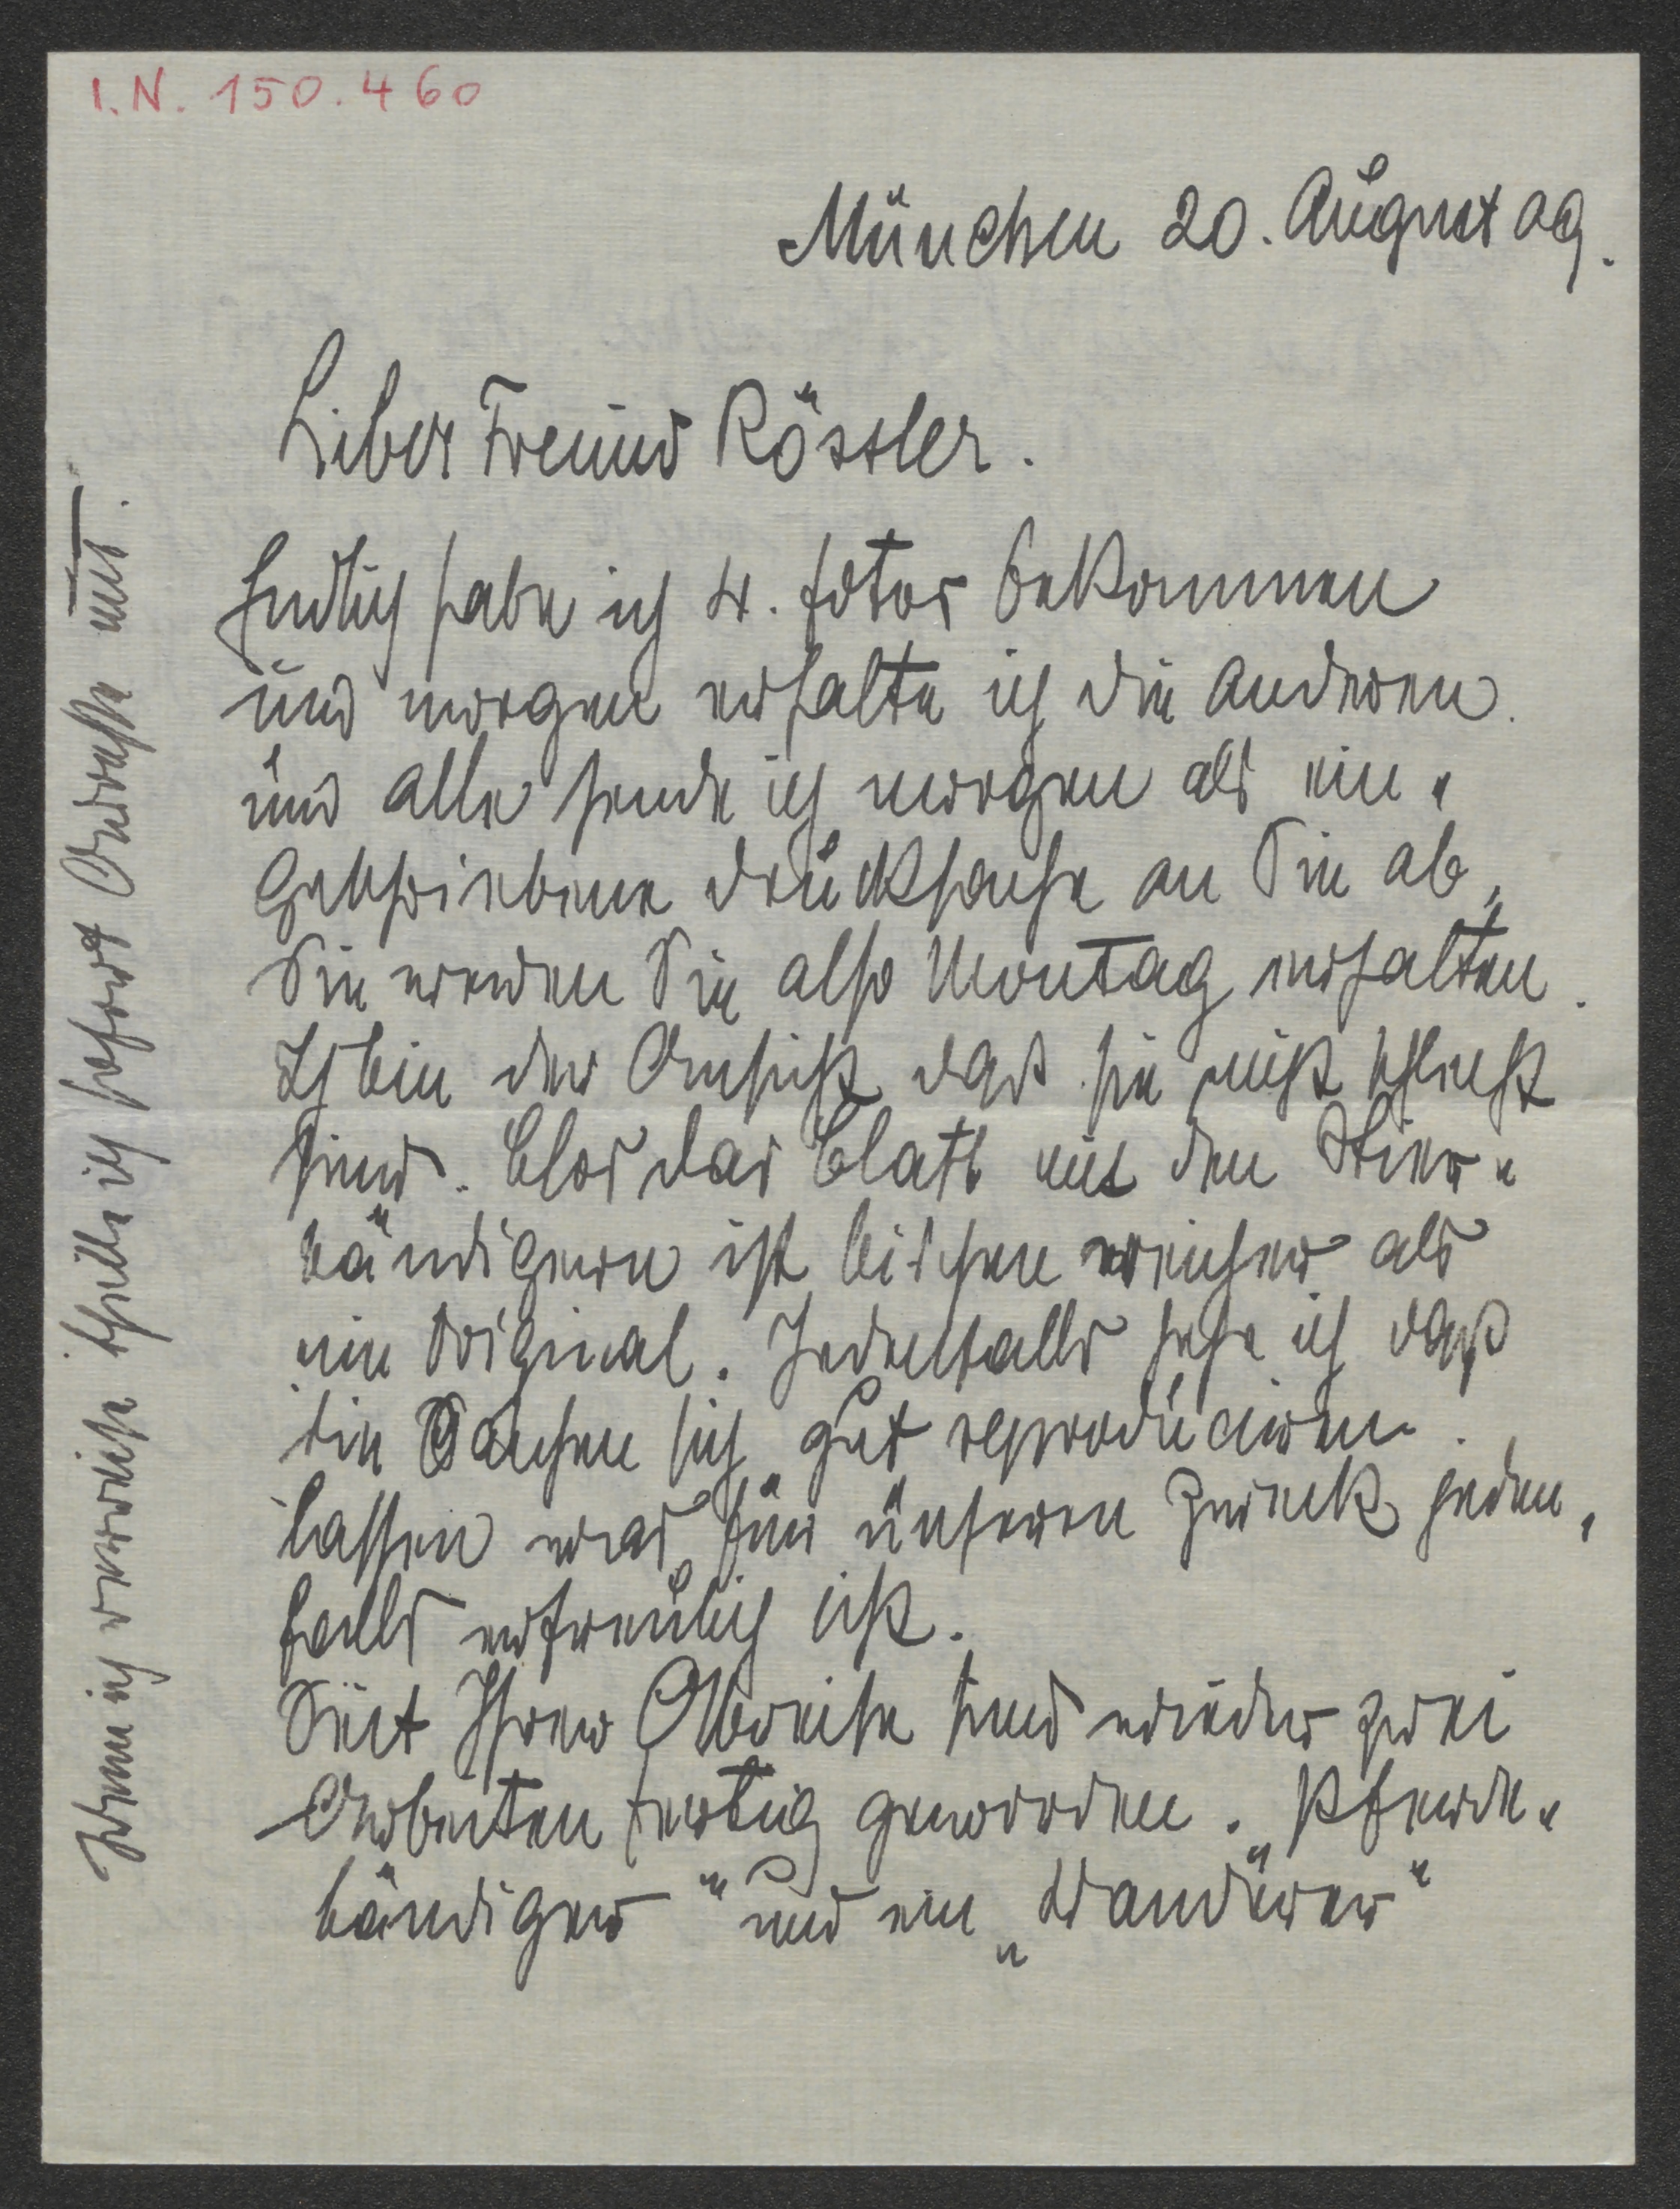 I.N. 150.460
München 20. August 09.
Liber Freund Rössler.
Endlich habe ich 4. fotos bekommen
und morgen erhalte ich die anderen.
und alle sende ich morgen als ein„
geschriebene drucksache an Sie ab,
Sie werden Sie also Montag erhalten.
Ich bin der Ansicht daß sie nicht schlecht
sind. blos das blatt mit den Stier„
bändigern ist bischen weicher als
ein Original. Jedenfalls sehe ich daß
die Sachen sich gut reproduciren.
lassen was für unseren Zweck jeden„
falls erfreulich ist.
Seit Ihrer Abreise sind wieder zwei
Arbeiten fertig geworden. „Pferde„
bändiger" und ein „Wanderer"
Wenn ich verreise theile ich sofort Adresse mit.